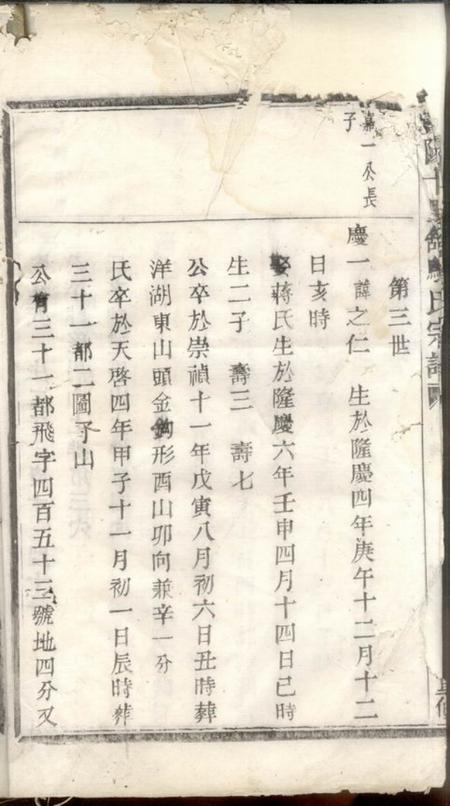 氏宗譜
第三世
嘉一公長
子
慶一 諱之仁 生於隆慶四年庚午十二月十二
日亥時
娶蔣氏生於隆慶六年壬申四月十四日巳時
生二子 壽三 壽七
公卒於崇禎十一年戊寅八月初六日丑時葬
洋湖東山頭金鉤形酉山卯向兼辛一分
氏卒於天啓四年甲子十一月初一日辰時葬
三十一都二圖子山
公有三十一都飛字四百五十三號地四分又